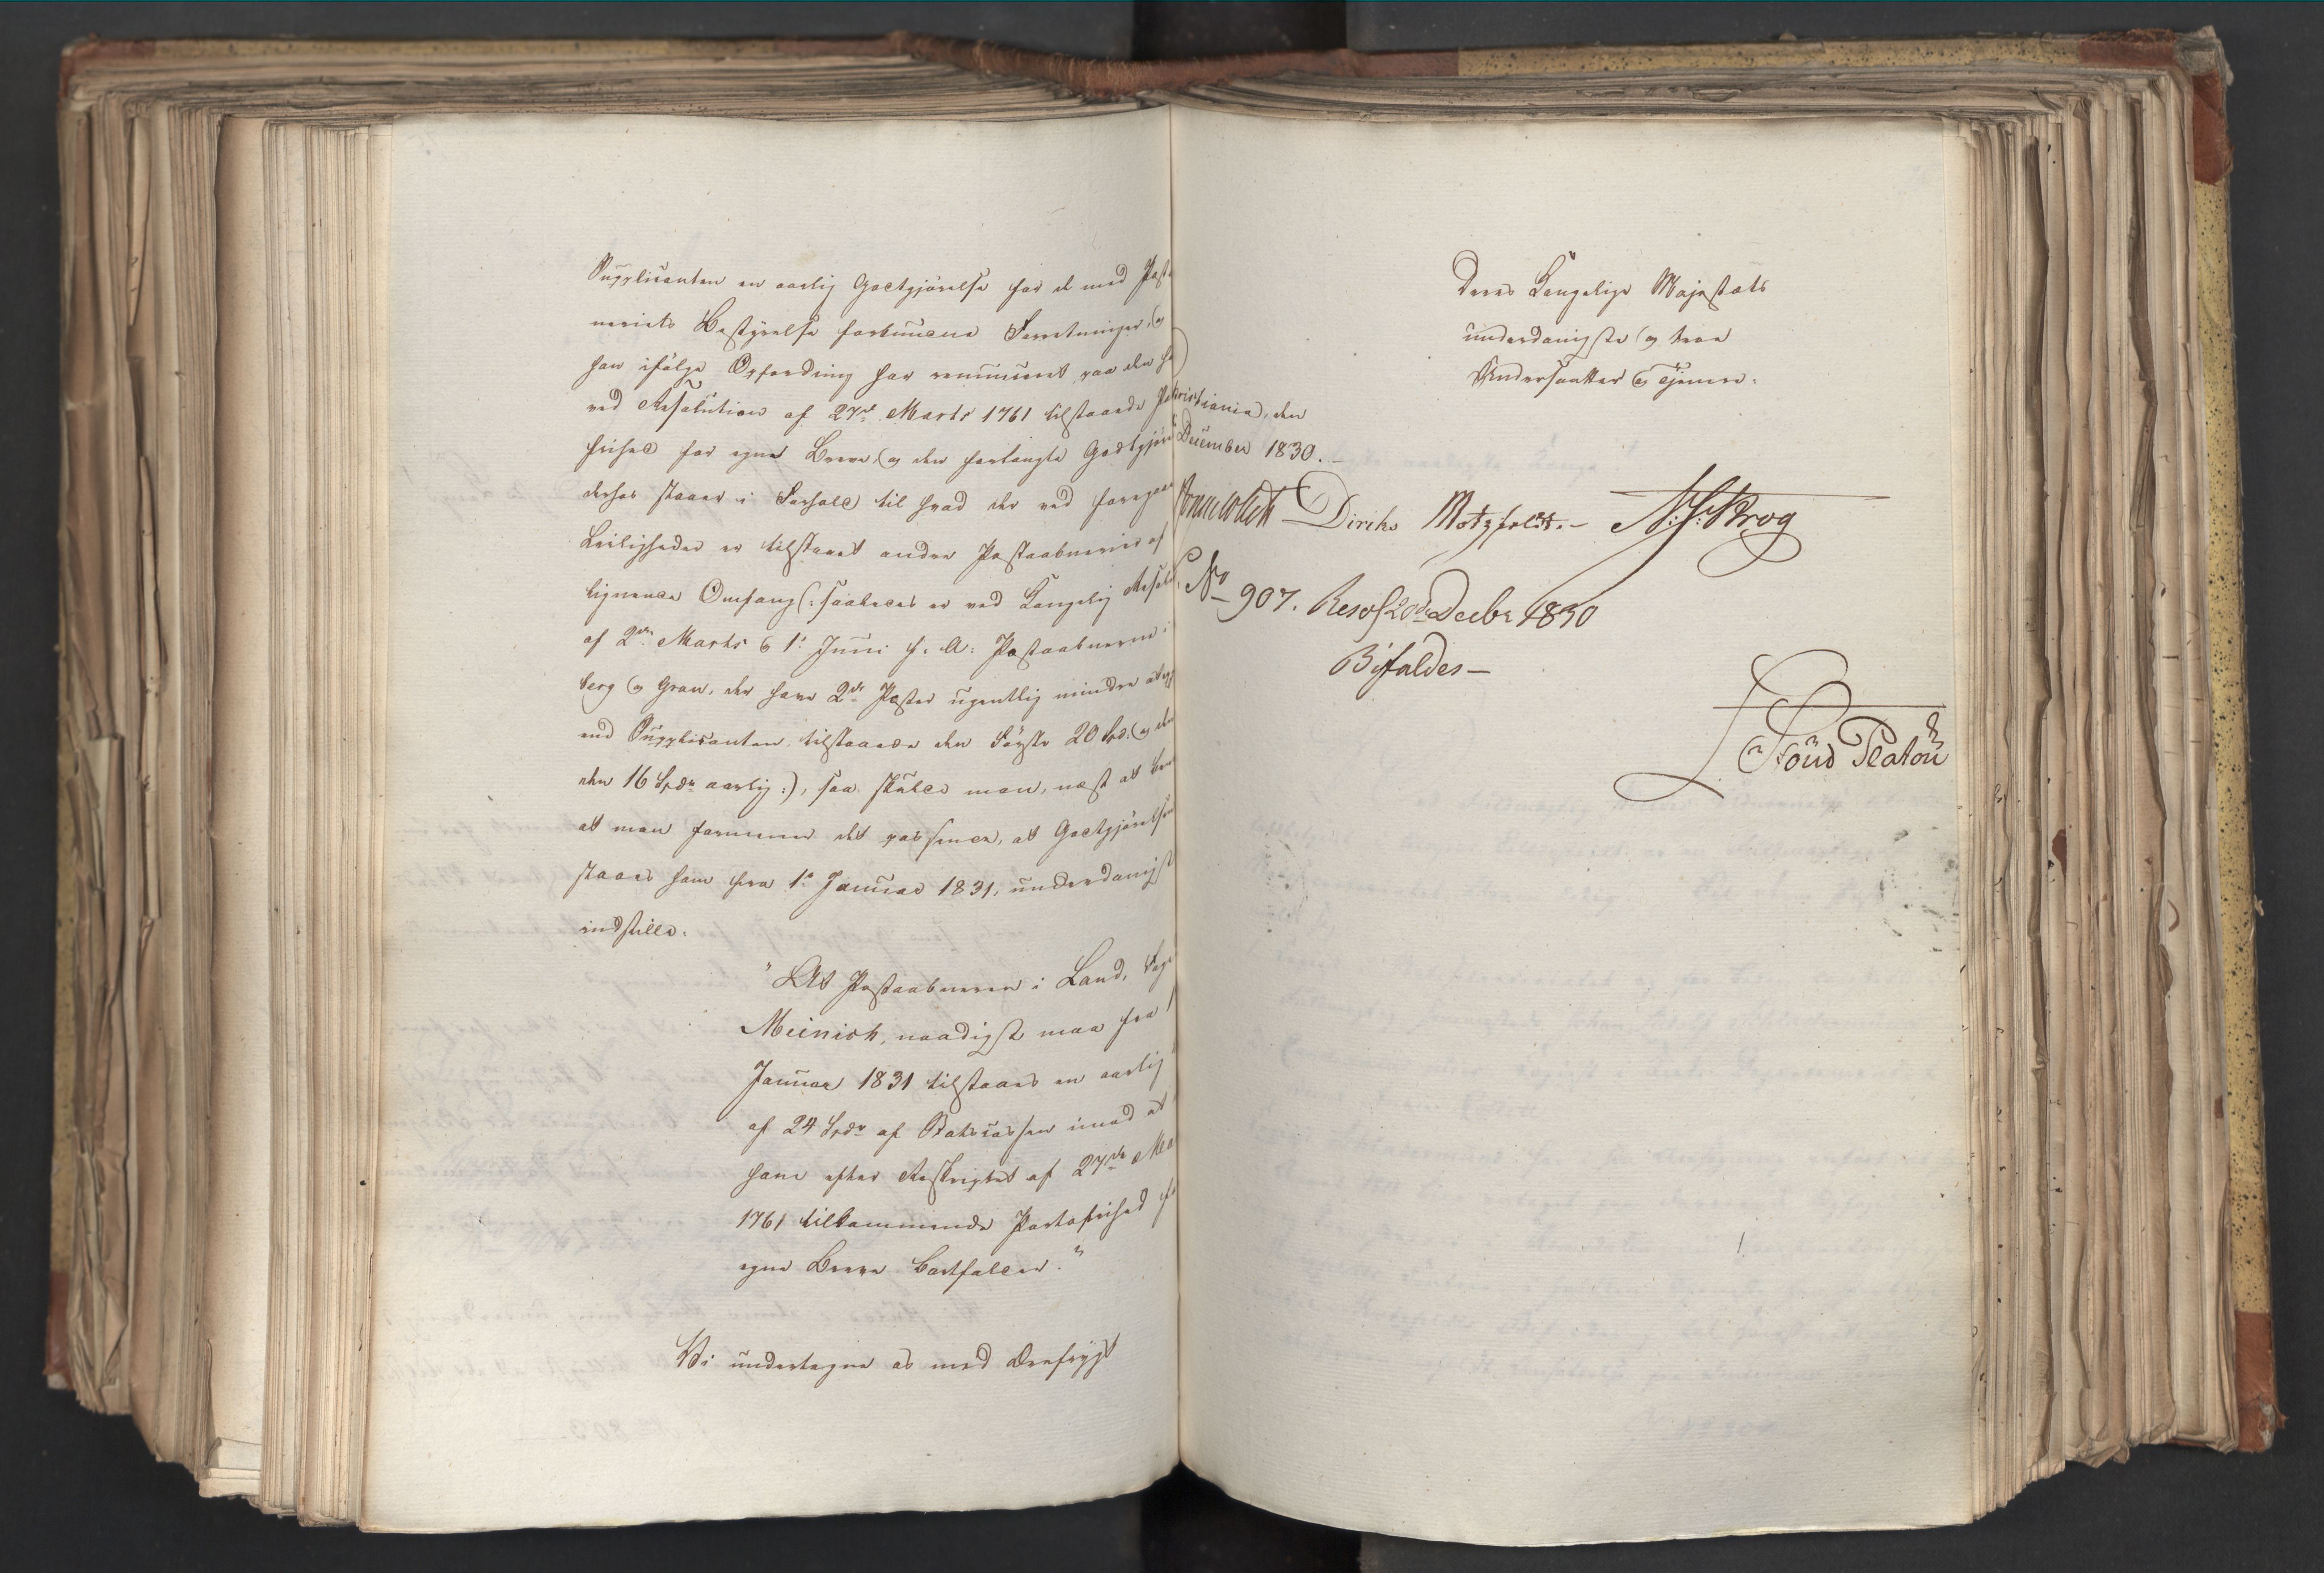 Supplicanten en aarlig Godtgjörelse for de med Post
neriets Bestyrelse forbundne Forretninger, og
han ifölge Opfordring har renunceret paa den h
ved Resolution af 27de Marts 1761 tilstaaede P
frihed for egne Breve, og den forlangte Godtgjör
derhos staaer i Forhold til hvad der ved foregaae
Leiligheder er tilstaaet andre Postaabnerier af
lignende Omfang (: saaledes er ved Kongelig Resol
af 2den Marts & 1ste Juni f. A. Postaabnerne i
berg og Gran, der have 2de Poster ugentlig mindre at
end Supplicanten, tilstaaede den Förste 20 Spd. og den
den 16 Spdr aarlig :), saa skulde man, næst at be
at man formener det passende, at Godtgjörelsen
staaes ham fra 1ste Januar 1831, underdanigst
indstille:
"At Postaabneren i Land, Foge
Meinich, naadigst maa fra 1
Januar 1831 tilstaaes en aarlig
af 24 Spdr af Statscassen imod at
ham efter Rescriptet af 27de Ma
1761 tilkommende Portofrihed f
egne Breve bortfalder."
Vi undertegne os med Ærefrygt
Deres Kongelige Majestæts
underdanigste og troe
Undersaatter og Tjenere.
ristiania, den
December 1830.
Diriks Motzfeldt. N. J. Krog
No 907. Resol 20de Decbr 1830
Bifaldes
Höud Platou